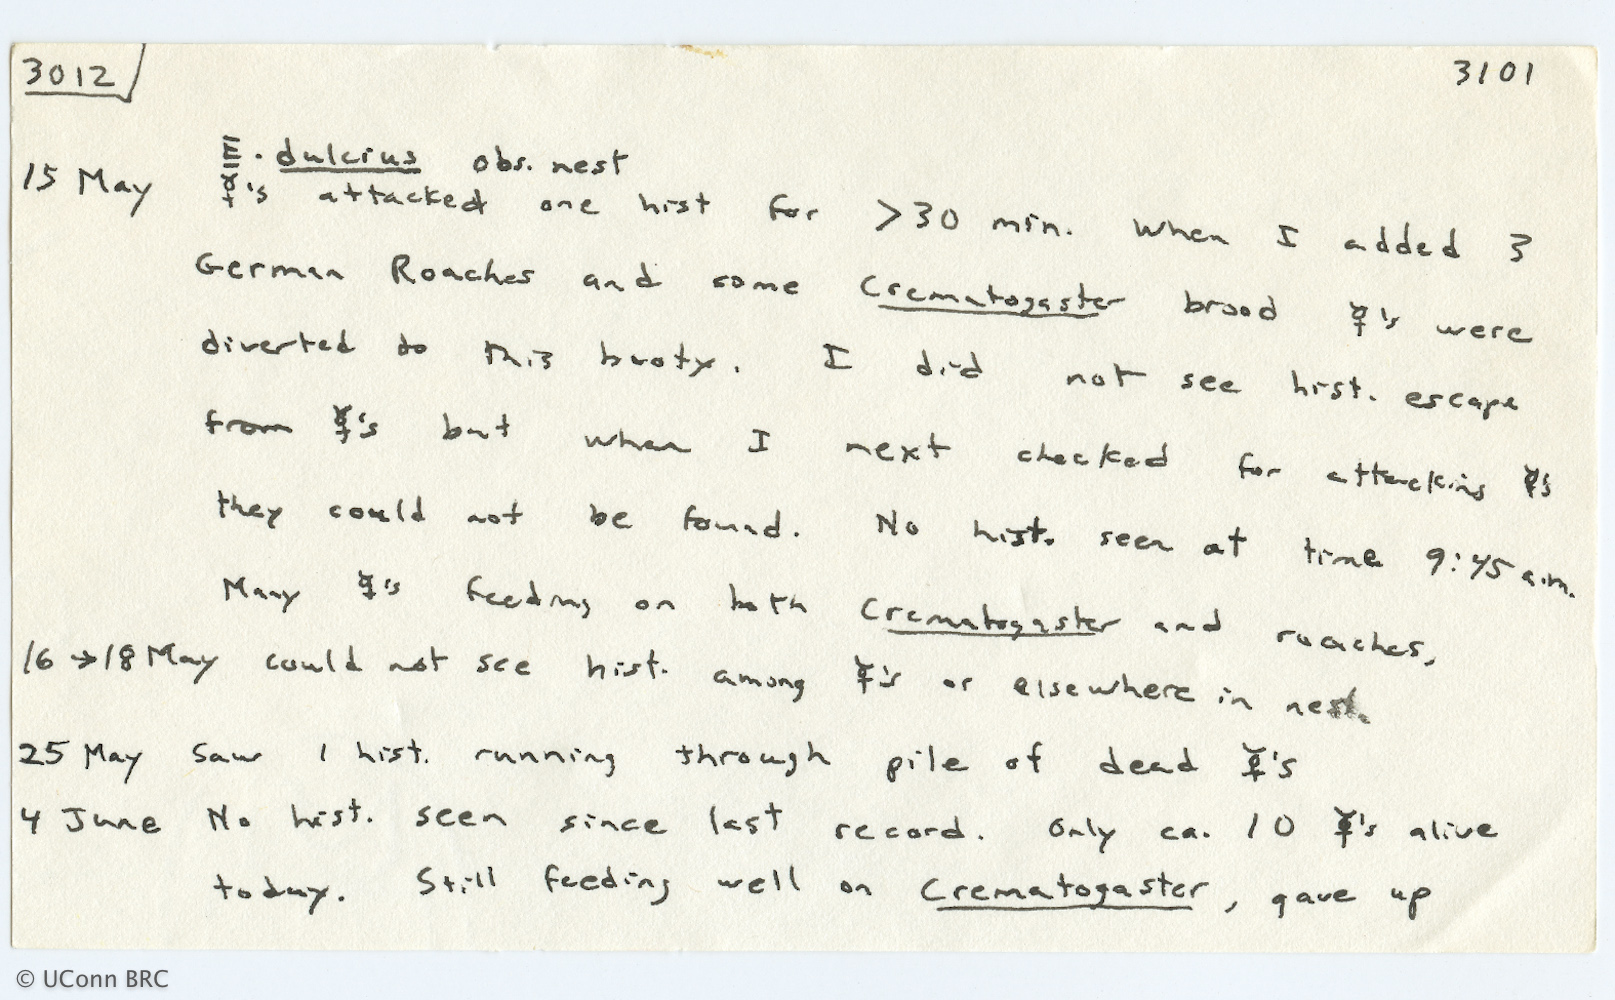 3012 3101
E. dulcius obs. nest
15 May ☿'s attacked one hist for >30 min. When I added 3
German Roaches and some Crematogaster brood ☿'s were
diverted to this booty. I did not see hist. escape
from ☿'s but when I next checked for attacking ☿'s
they could not be found. No hist. seen at time 9:45 a.m.
Many ☿'s feeding on both Crematogaster and roaches.
16 → 18 May could not see hist. among ☿'s or elsewhere in nest.
25 May Saw 1 hist. running through pile of dead ☿'s
4 June No hist. seen since last record. Only ca. 10 ☿'s alive
today. Still feeding well on Crematogaster, gave up
© UConn BRC